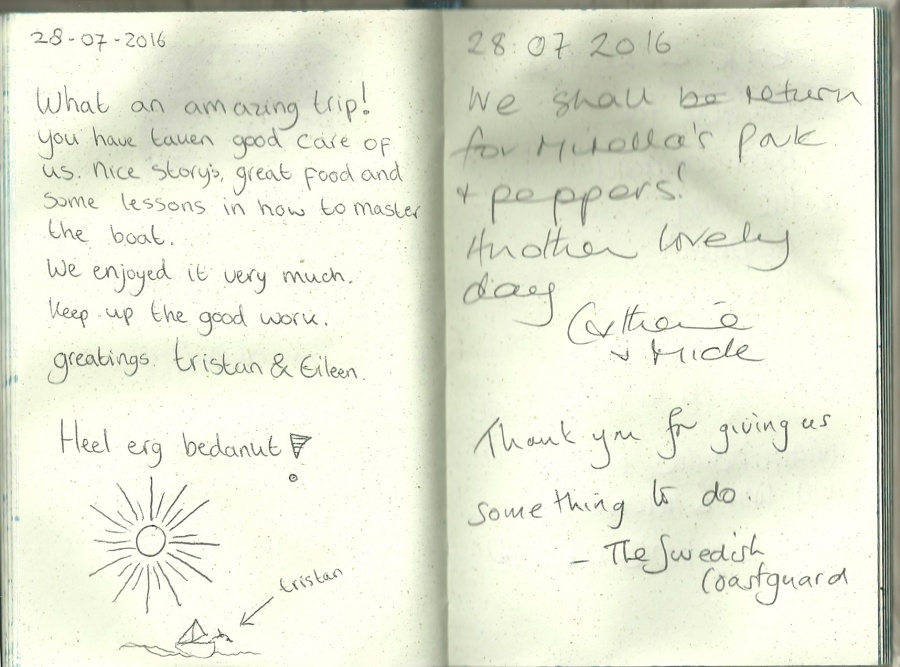 28-07-2016
What an amazing trip!
you have tauen good care of
us. nice story's, great food and
some lessons in how to master
the boat.
We enjoyed it very much.
Keep up the good work.
greatings. tristan & Eileen.
Heel erg bedanut!
tristan
28.07 2016
We shall be return
for Mirella's Pork
+ peppers!
Another lovely
day
Catherine
+ Mick
Thank you for giving us
something to do.
- The Swedish
Coastguard